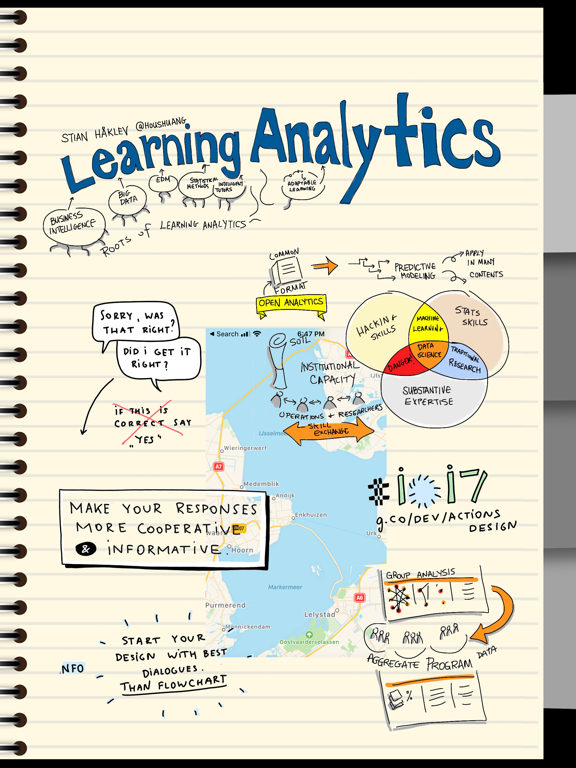 STIAN HÅKLEV @HOUSHUANG
Learning Analytics
BUSINESS
INTELLIGENCE
BIG
DATA
EDM
STATISTICAL
METHODS
INTELLIGENT
TUTORS
ADAPTABLE
LEARNING
ROOTS of LEARNING ANALYTICS
COMMON
FORMAT
OPEN ANALYTICS
PREDICTIVE
MODELING
APPLY
IN MANY
CONTENTS
SORRY, WAS
THAT RIGHT?
DID i GET iT
RIGHT?
IF THIS IS
CORRECT SAY
"YES"
Search
6:47 PM
SOIL
INSTITUTIONAL
CAPACITY
OPERATIONS & RESEARCHERS
SKILL
EXCHANGE
HACKING
SKILLS
MACHINE
LEARNING
STATS
SKILLS
DATA
SCIENCE
DANGER
TRADITIONAL
RESEARCH
SUBSTANTIVE
EXPERTISE
IJsselme
Wieringerwerf
A7
Medemblik
Andijk
Enkhuizen
Hoorn
Urk
Markermeer
Purmerend
Monnickendam
Lelystad
A6
Oostvaardersplassen
MAKE YOUR RESPONSES
MORE COOPERATiVE
& iNFORMATIVE.
#io17
g.co/DEV/ACTIONS
DESIGN
GROUP ANALYSIS
DATA
AGGREGATE PROGRAM
%
START YOUR
DESIGN WITH BEST
DIALOGUES.
THAN FLOWCHART
NFO